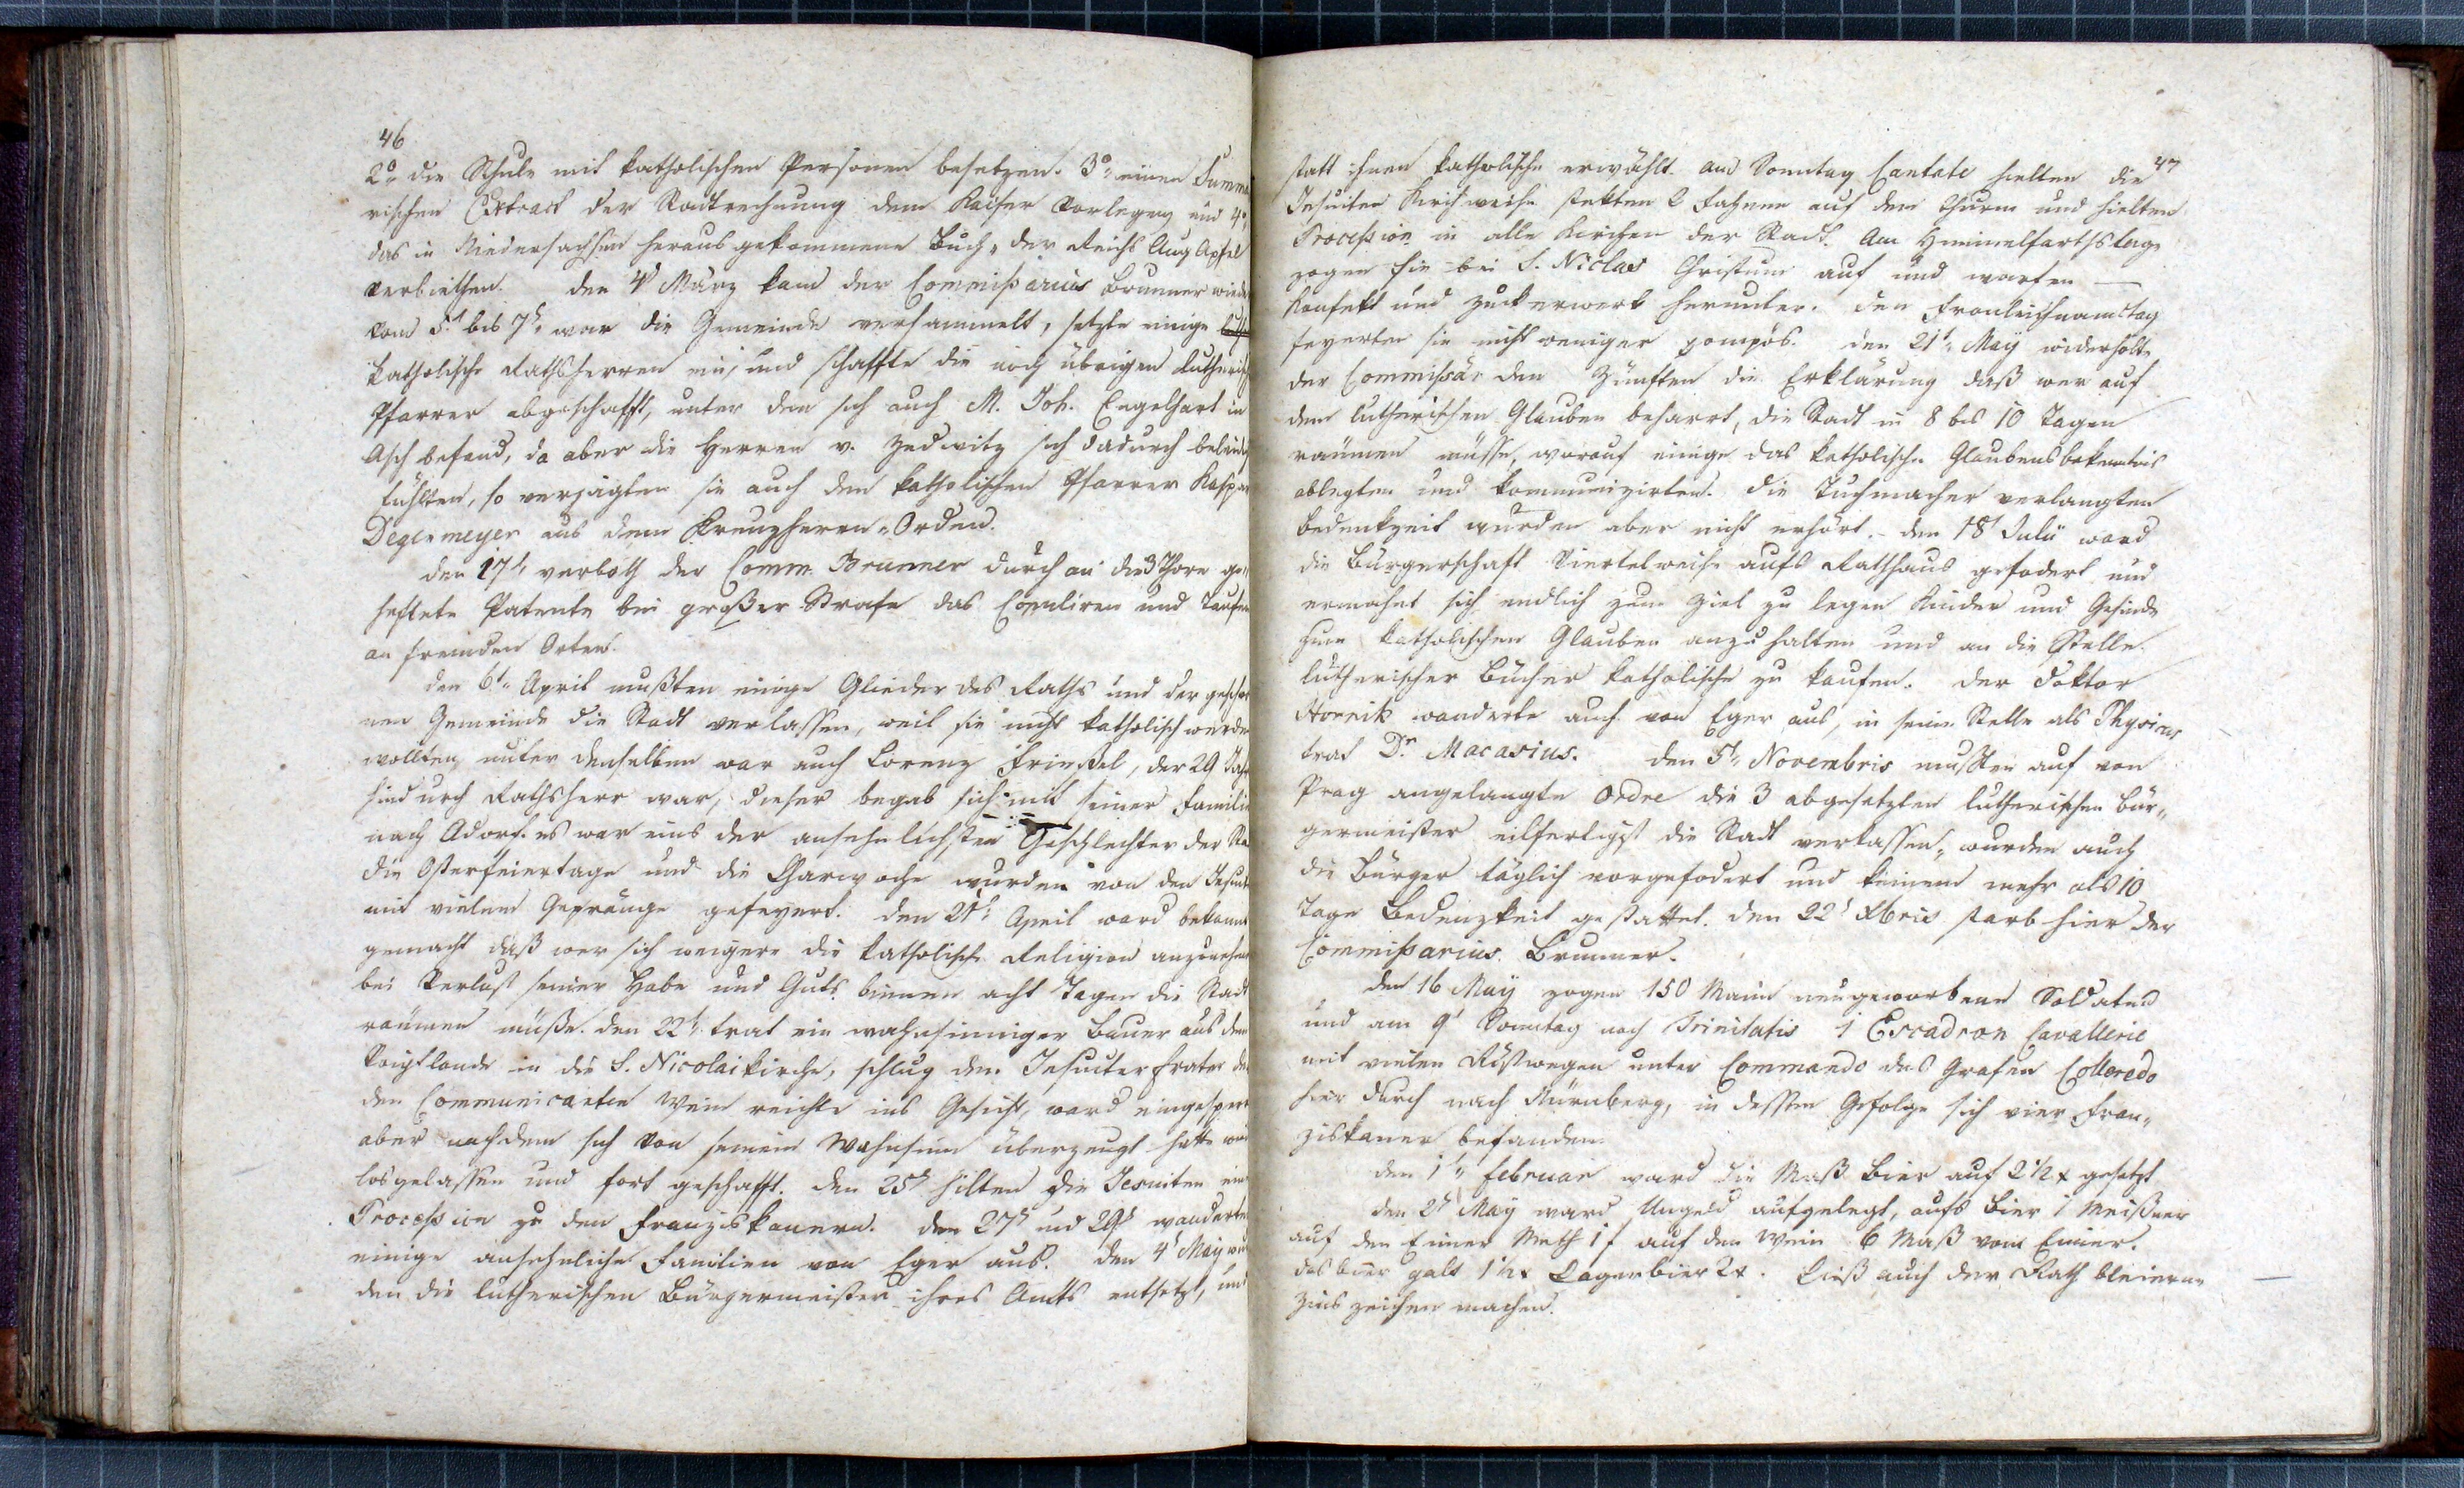 46
2o. die Schule mit katholischen Personen besetzen. 3o. einen Summa
rischen Extract der Raitrechnung dem Kaiser vorlegen und 4o.
das in Niedersachsen herausgekommene Buch, der Reichs Aug Apfel
verbiethen. den 4t März kam der Commissarius Brunner wieder
vom 5t bis 7t. war die Gemeinde versammelt, setzte einige
katholische Rathsherren ein, und schaffte die noch übrigen Lutherisch
Pfarrer abgeschafft, unter den sich auch M. Joh. Engelhart in
Asch befand, da aber die Herren v. Zedwitz sich dadurch beleidi
fühlten, so verjagten sie auch den katholischen Pfarrer Kaspar
Degenmeyer aus dem Kreuzherrn-Orden.
den 17t. verboth der Comm. Brunner durch an die 3 Thore ge-
heftete Patente bei großer Strafe das Copuliren und Taufen
an fremden Orten.
den 6t. April mußten einige Glieder des Raths und der geschwor
nen Gemeinde die Stadt verlassen, weil sie nicht katholisch werden
wollten, unter denselben war auch Lorenz Frießel, der 29 Jah
hindurch Rathsherr war, dieser begab sich mit seiner Familie
nach Adorf. es war eins der ansehnlichsten Geschlechter der Sta
die Osterfeiertage und die Charwoche wurden von den Jesuit
mit vielem Gepränge gefeyert. den 21t. April ward bekannt
gemacht daß wer sich weigere die katholische Religion anzunehm
bei Verlust seiner Habe und Guts binnen acht Tagen die Stadt
räumen müße. den 22t. trat ein wahnsinniger Bauer aus dem
Voigtlande in die S. Nicolaikirche, schlug den Jesuiter frater der
den Communicanten Wein reichte ins Gesicht, ward eingesperrt
aber nachdem sich von seinem Wahnsinn überzeugt hatte wied
losgelassen und fort geschafft. den 25t hilten die Jesuiten eine
Procession zu den Franziskanern. den 27t und 29t wanderten
einige ansehnliche Familien von Eger aus. den 4t May wur
den die lutherischen Bürgermeister ihres Amts entsetzt, und
47
statt ihnen katholische erwählt. am Sonntag Cantate hielten die
Jesuiten Kirchweihe stekten 2 Fahnen auf den Thurm und hielten
Procession in alle Kirchen der Stadt. Am Himmelfarthstage
zogen sie bei S. Niclas Christum auf und warfen —
Konfekt und Zuckerwerk herunter. den Fronleichnamstag
feyerten sie nicht weniger pompös. den 21t. May widerholte
der Commissär den Zünften die Erklärung daß wer auf
dem lutherischen Glauben beharrt, die Stadt in 8 bis 10 Tagen
räumen müsse, worauf einige das katholische Glaubensbekenntnis
ablegten und kommunizirten. die Tuchmacher verlangten
Bedenkzeit wurden aber nicht erhört. - den 18t Julii ward
die Bürgerschaft Viertelweise aufs Rathhaus gefodert und
ermahnt sich endlich zum Ziel zu legen Kinder und Gesinde
zum katholischen Glauben anzuhalten und an die Stelle
lutherischer Bücher katholische zu kaufen. der Doktor
Hornik wanderte auch von Eger aus, in seine Stelle als Physicus
trat Dr Macasius. den 5t. Novembris mußten auf von
Prag angelangte Ordre die 3 abgesetzten lutherischen Bür-
germeister eilfertigst die Stadt verlassen, wurden auch
die Bürger täglich vorgefodert und keinem mehr als 10
Tage Bedenzkeit gestattet. den 22t Xbris starb hier der
Commissarius Brunner.
den 16 May zogen 150 Mann neugeworbene Soldaten
und am 9t Sonntag nach Trinitatis 1 Escadron Cavallerie
mit vielen Rüstwegen unter Commando des Grafen Colloredo
hier durch nach Nürnberg, in dessen Gefolge sich vier Fran-
ziskaner befanden.
den 1t. Februar ward die Maß Bier auf 2 1/2 x gesetzt
den 2t May ward Ungeld aufgelegt, aufs Bier 1 Meißner
auf den Eimer Meth 1 f auf den Wein 6 Maß vom Eimer.
das bier galt 1 1/2 x Lagerbier 2 x. Ließ auch der Rath bleierne
Zinszeichen machen.